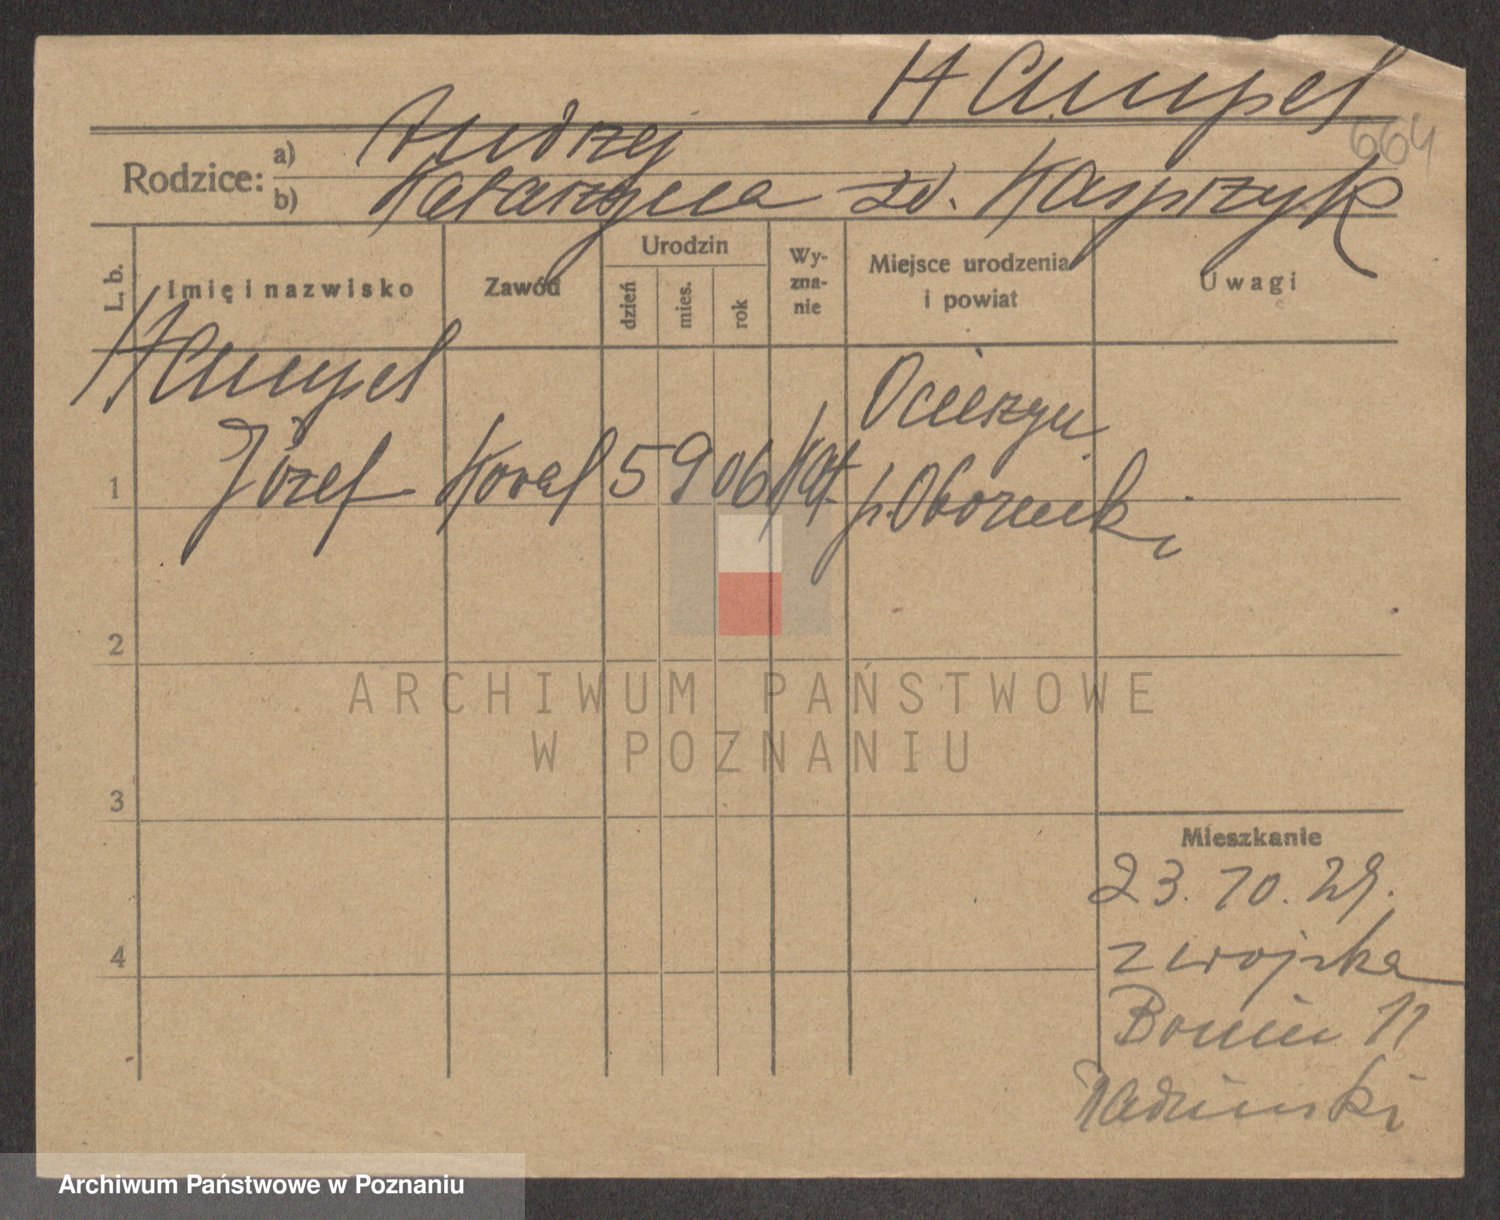 Hampel
664
Rodzice: a) Andrzej
b) Katarzyna zd. Kasprzyk
L. b.
Imię i nazwisko
Zawód
Urodzin
dzień
mies.
rok
Wy-
zna-
nie
Miejsce urodzenia
i powiat
Uwagi
Hampel
Józef
Koval
5 9 06
Kat
Ocieszyn
p. Oborniki
1
2
3
4
Mieszkanie
23. 10. 29.
z wojska
Bonin 11
ARCHIWUM PAŃSTWOWE
W POZNANIU
Archiwum Państwowe w Poznaniu